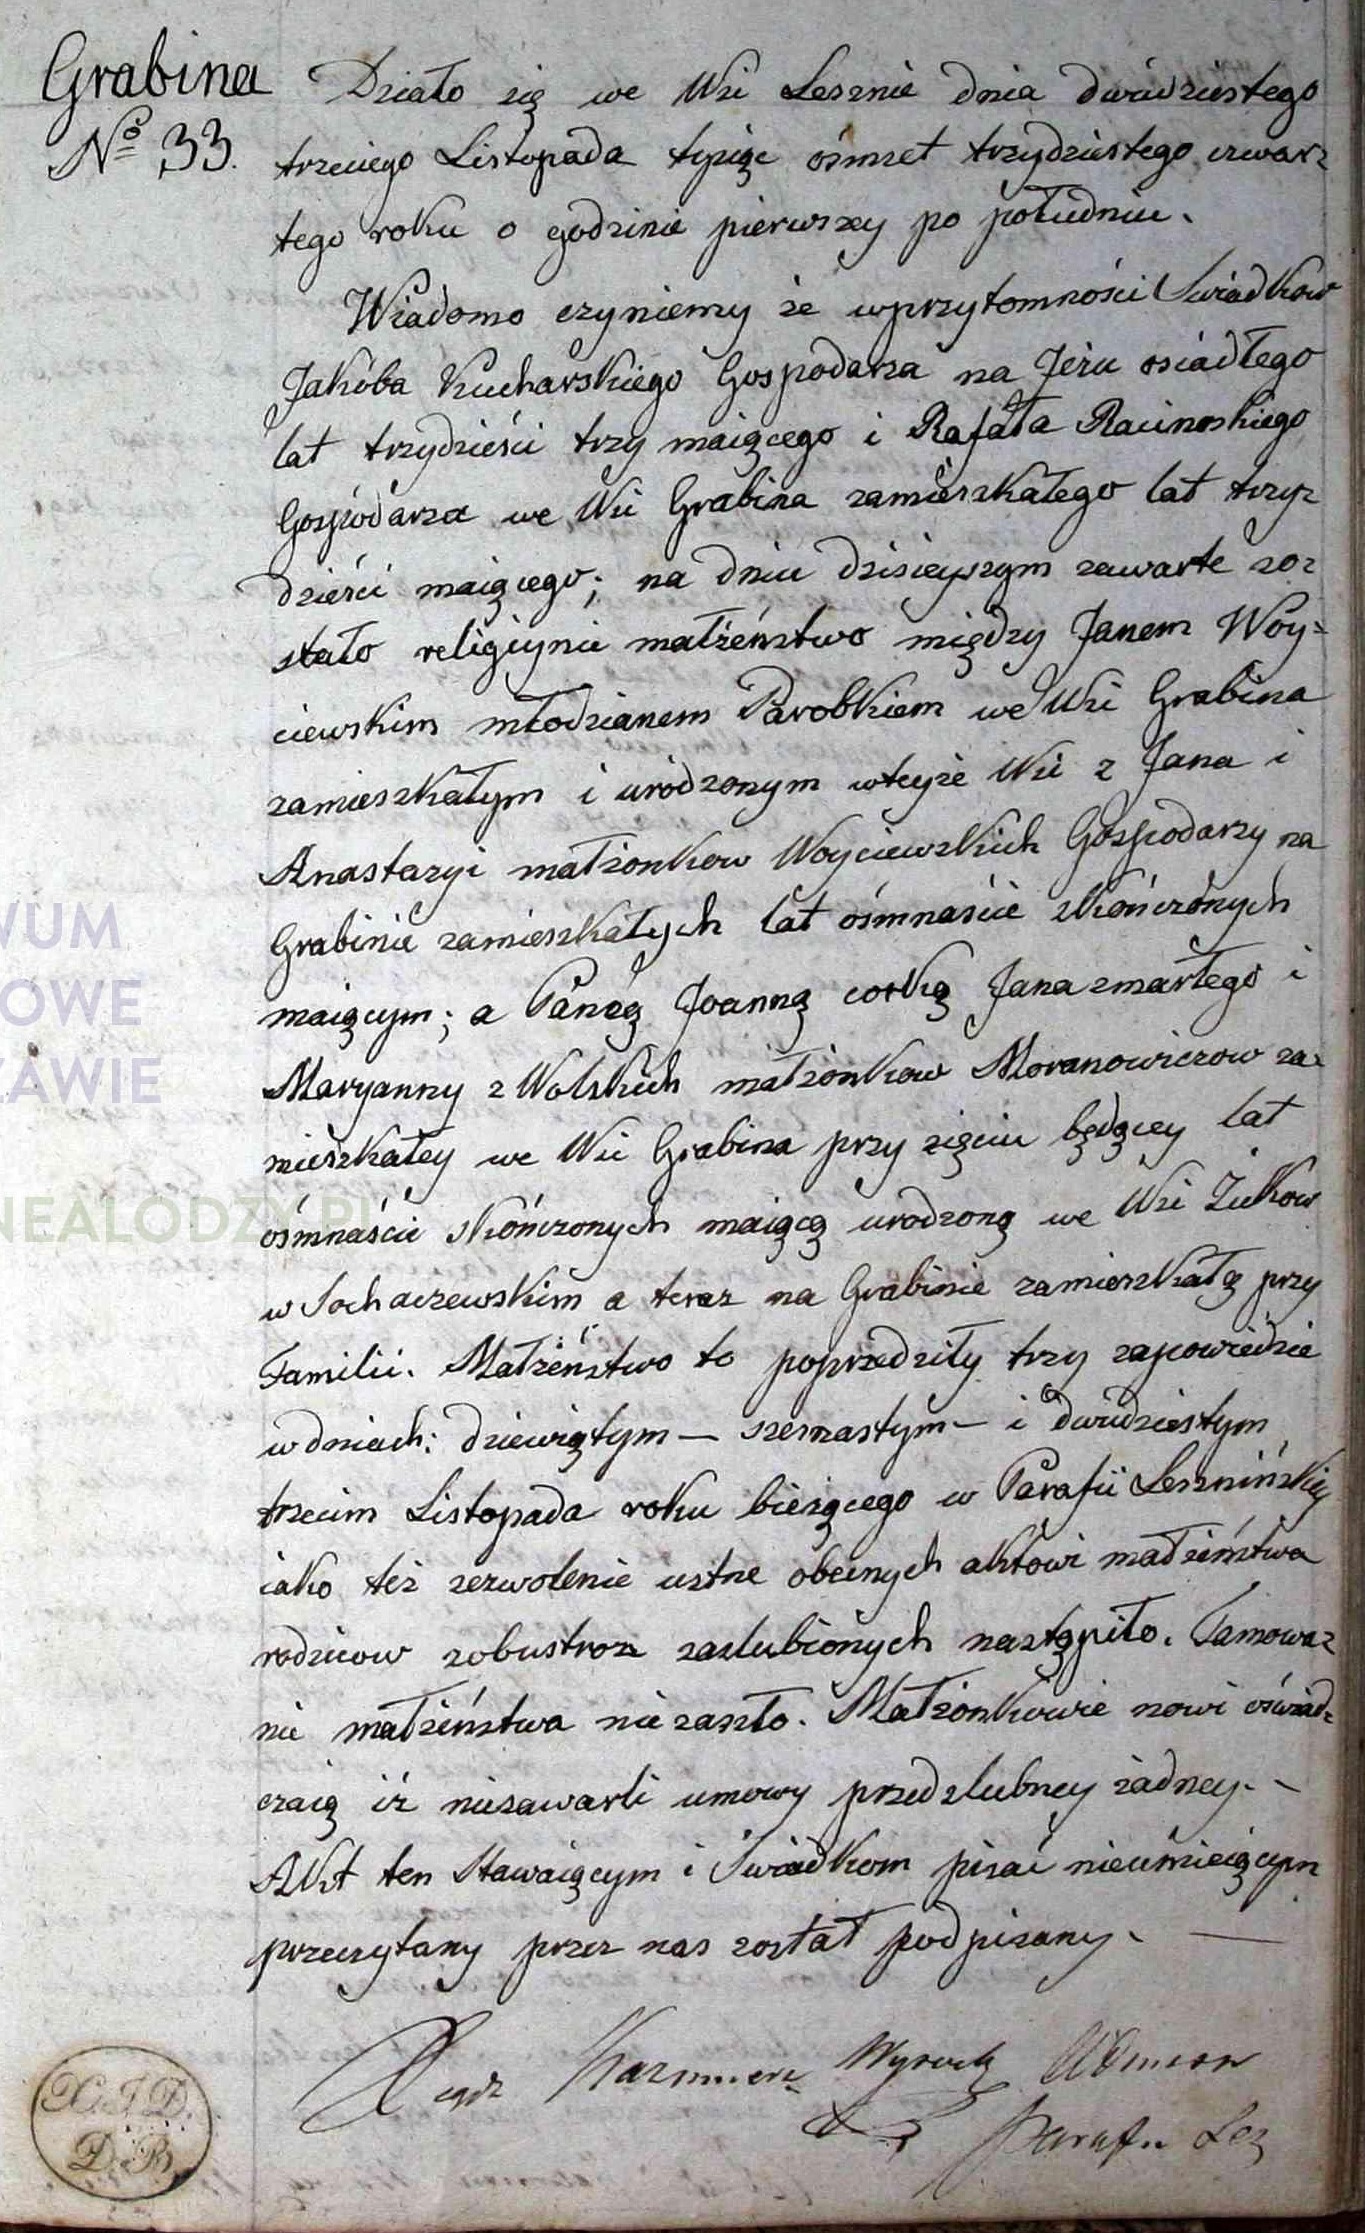 Grabina
No 33.
Działo się we Wsi Lesznie dnia dwudziestego
trzeciego Listopada tysiąc ośmset trzydziestego czwar=
tego roku o godzinie pierwszey po południu.
Wiadomo czyniemy że wprzytomności Swiadkow
Jakóba Kucharskiego Gospodarza na Jeżu osiadłego
lat trzydzieści trzy maiącego i Rafała Racinoskiego
Gospodarza we Wsi Grabina zamieszkałego lat trzy=
dzieści maiącego; na dniu dzisieyszym zawarte zo=
stało religiynie małżeństwo między Janem Woy=
ciewskim młodzianem Parobkiem we Wsi Grabina
zamieszkałym i urodzonym wteyże Wsi z Jana i
Anastazyi małżonkow Woyciewskich Gospodarzy na
Grabinie zamieszkałych lat ośmnaście skończonych
maiącym; a Panną Joanną corką Jana zmarłego i
Maryanny z Wolskich małżonkow Moranowiczow za=
mieszkałey we Wsi Grabina przy zięciu będącey lat
ośmnaście skończonych maiącą urodzoną we Wsi Żukow
w Sochaczewskim a teraz na Grabinie zamieszkałą przy
Familii. Małżeństwo to poprzedziły trzy zapowiedzie
w dniach: dziewiątym — szesnastym — i dwudziestym
trzecim Listopada roku bieżącego w Parafii Lesznińskiey
iako też zezwolenie ustne obecnych aktowi małżeństwa
rodzicow zobustron zaslubionych nastąpiło. Tamowa=
nie małżeństwa nie zaszło. Małżonkowie nowi oświad=
czaią iż niezawarli umowy przedslubney żadney. -
Akt ten Stawaiącym i Swiadkom pisać nieumieiącym
przeczytany przez nas został podpisany. —
Xiądz Kazimierz Wysocki Admin
Parafii Les
X. I. D.
D. B.
WUM
OWE
ZAWIE
NEALODZY.PL